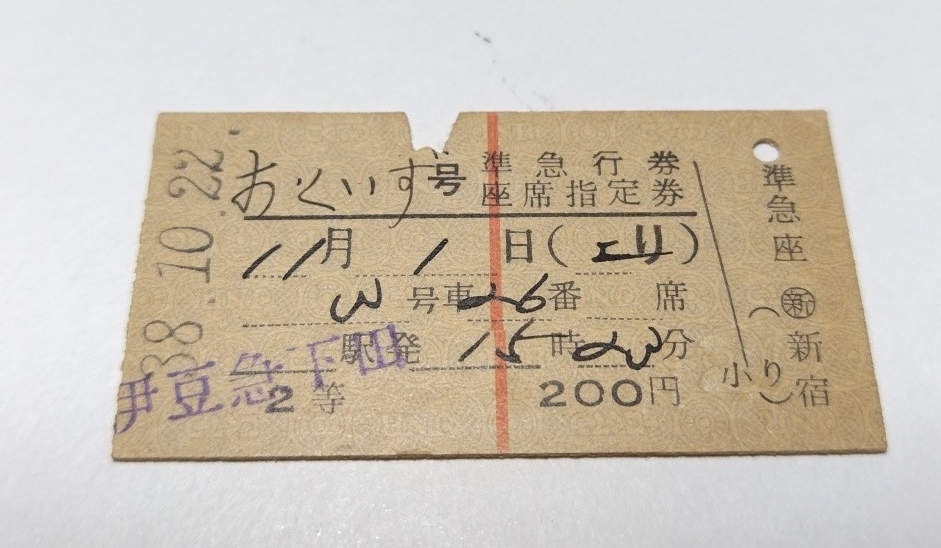 38.10.22
おくいず号 準急行券
座席指定券
11月1日(
3号車26番 席
伊豆急下田駅発15時23分
2等 200円
準急座 ㊟新宿
小